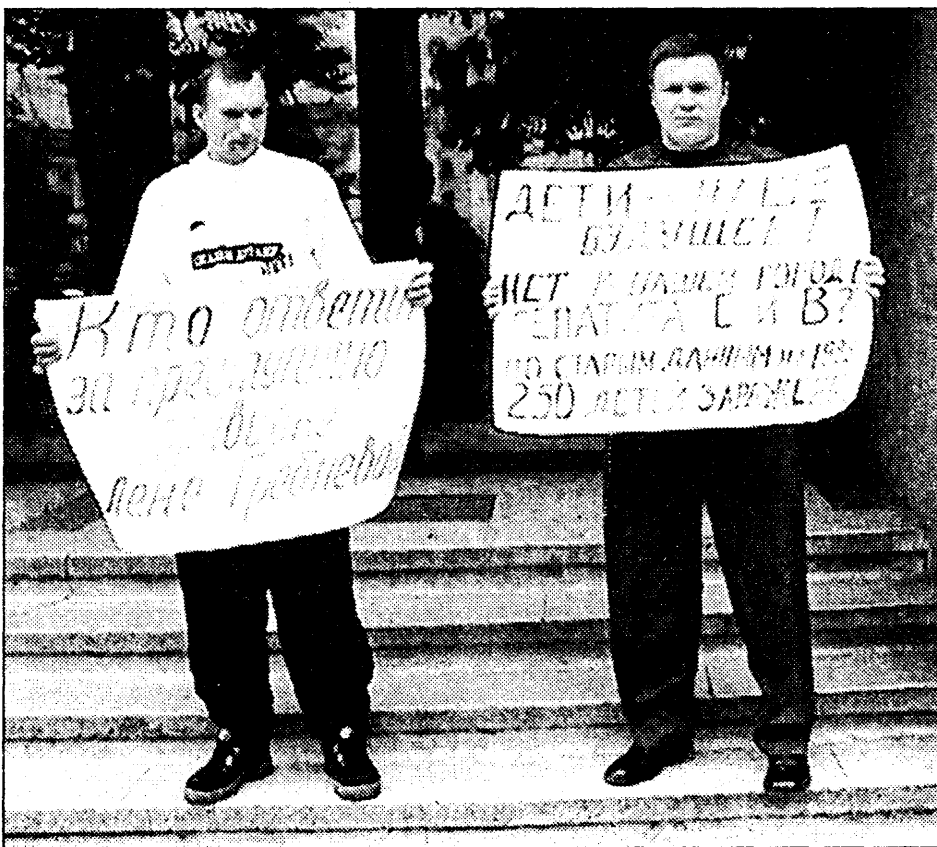 Кто ответит
за преступную
Лены Гребневой
ДЕТИ - НАШЕ
БУДУЩЕЕ
НЕТ В НАШЕМ ГОРОДЕ
ГЕПАТИТА С И В?
ПО СТАРЫМ ДАННЫМ
250 ДЕТЕЙ ЗАРАЖЕНО